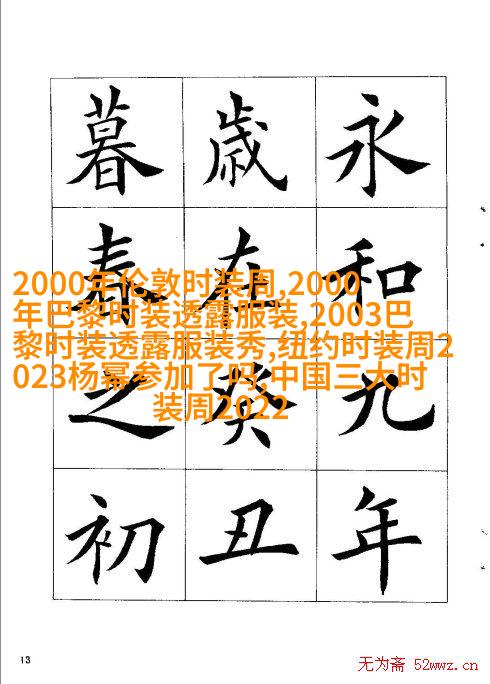 永和九年
歲在癸丑
暮春之初
2000年伦敦时装周,2000
年巴黎时装透露服装,2003巴
黎时装透露服装秀,纽约时装周2
023杨幂参加了吗,中国三大时
装周2022
13
无为斋 52wwz.cn